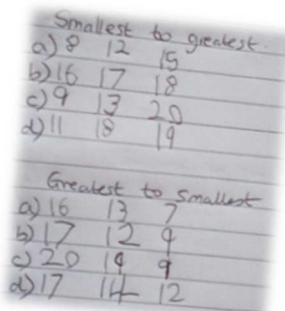 Smallest to greatest.
a) 8 12 15
b) 16 17 18
c) 9 13 20
d) 11 18 19
Greatest to smallest
a) 16 13 7
b) 17 12 9
c) 20 19 9
d) 17 14 12